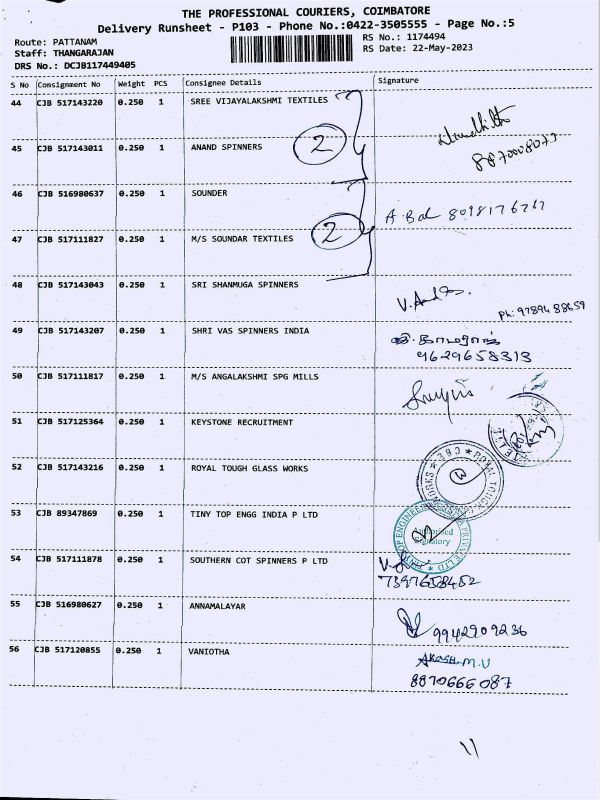 THE PROFESSIONAL COURIERS, COIMBATORE
Delivery Runsheet - P103 - Phone No.:0422-3505555 - Page No.:5
Route: PATTANAM
RS No.: 1174494
Staff: THANGARAJAN
RS Date: 22-May-2023
DRS No.: DCJB117449405
S No Consignment No Weight PCS Consignee Details Signature
44 CJB 517143220 0.250 1 SREE VIJAYALAKSHMI TEXTILES
2
8870008073
45 CJB 517143011 0.250 1 ANAND SPINNERS
46 CJB 516980637 0.250 1 SOUNDER
A. Bal
2
47 CJB 517111827 0.250 1 M/S SOUNDAR TEXTILES
48 CJB 517143043 0.250 1 SRI SHANMUGA SPINNERS
Ph: 9789488659
49 CJB 517143207 0.250 1 SHRI VAS SPINNERS INDIA
9629658313
50 CJB 517111817 0.250 1 M/S ANGALAKSHMI SPG MILLS
51 CJB 517125364 0.250 1 KEYSTONE RECRUITMENT
52 CJB 517143216 0.250 1 ROYAL TOUGH GLASS WORKS
ROYAL TOUGH
WORKS ★ CBE ★
53 CJB 89347869 0.250 1 TINY TOP ENGG INDIA P LTD
Authorised
Signatory
54 CJB 517111878 0.250 1 SOUTHERN COT SPINNERS P LTD
55 CJB 516980627 0.250 1 ANNAMALAYAR
9942909236
56 CJB 517120855 0.250 1 VANIOTHA
AKASH. M. U
8870666087
11